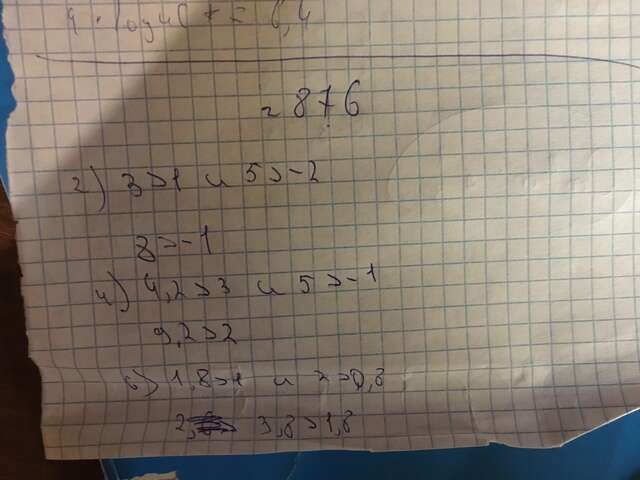 876
2) 3>1 и 5>-2
8>-1
4) 4,2>3 и 5>-1
9,2>2
6) 1,8>1 и 2>0,8
3,8>1,8